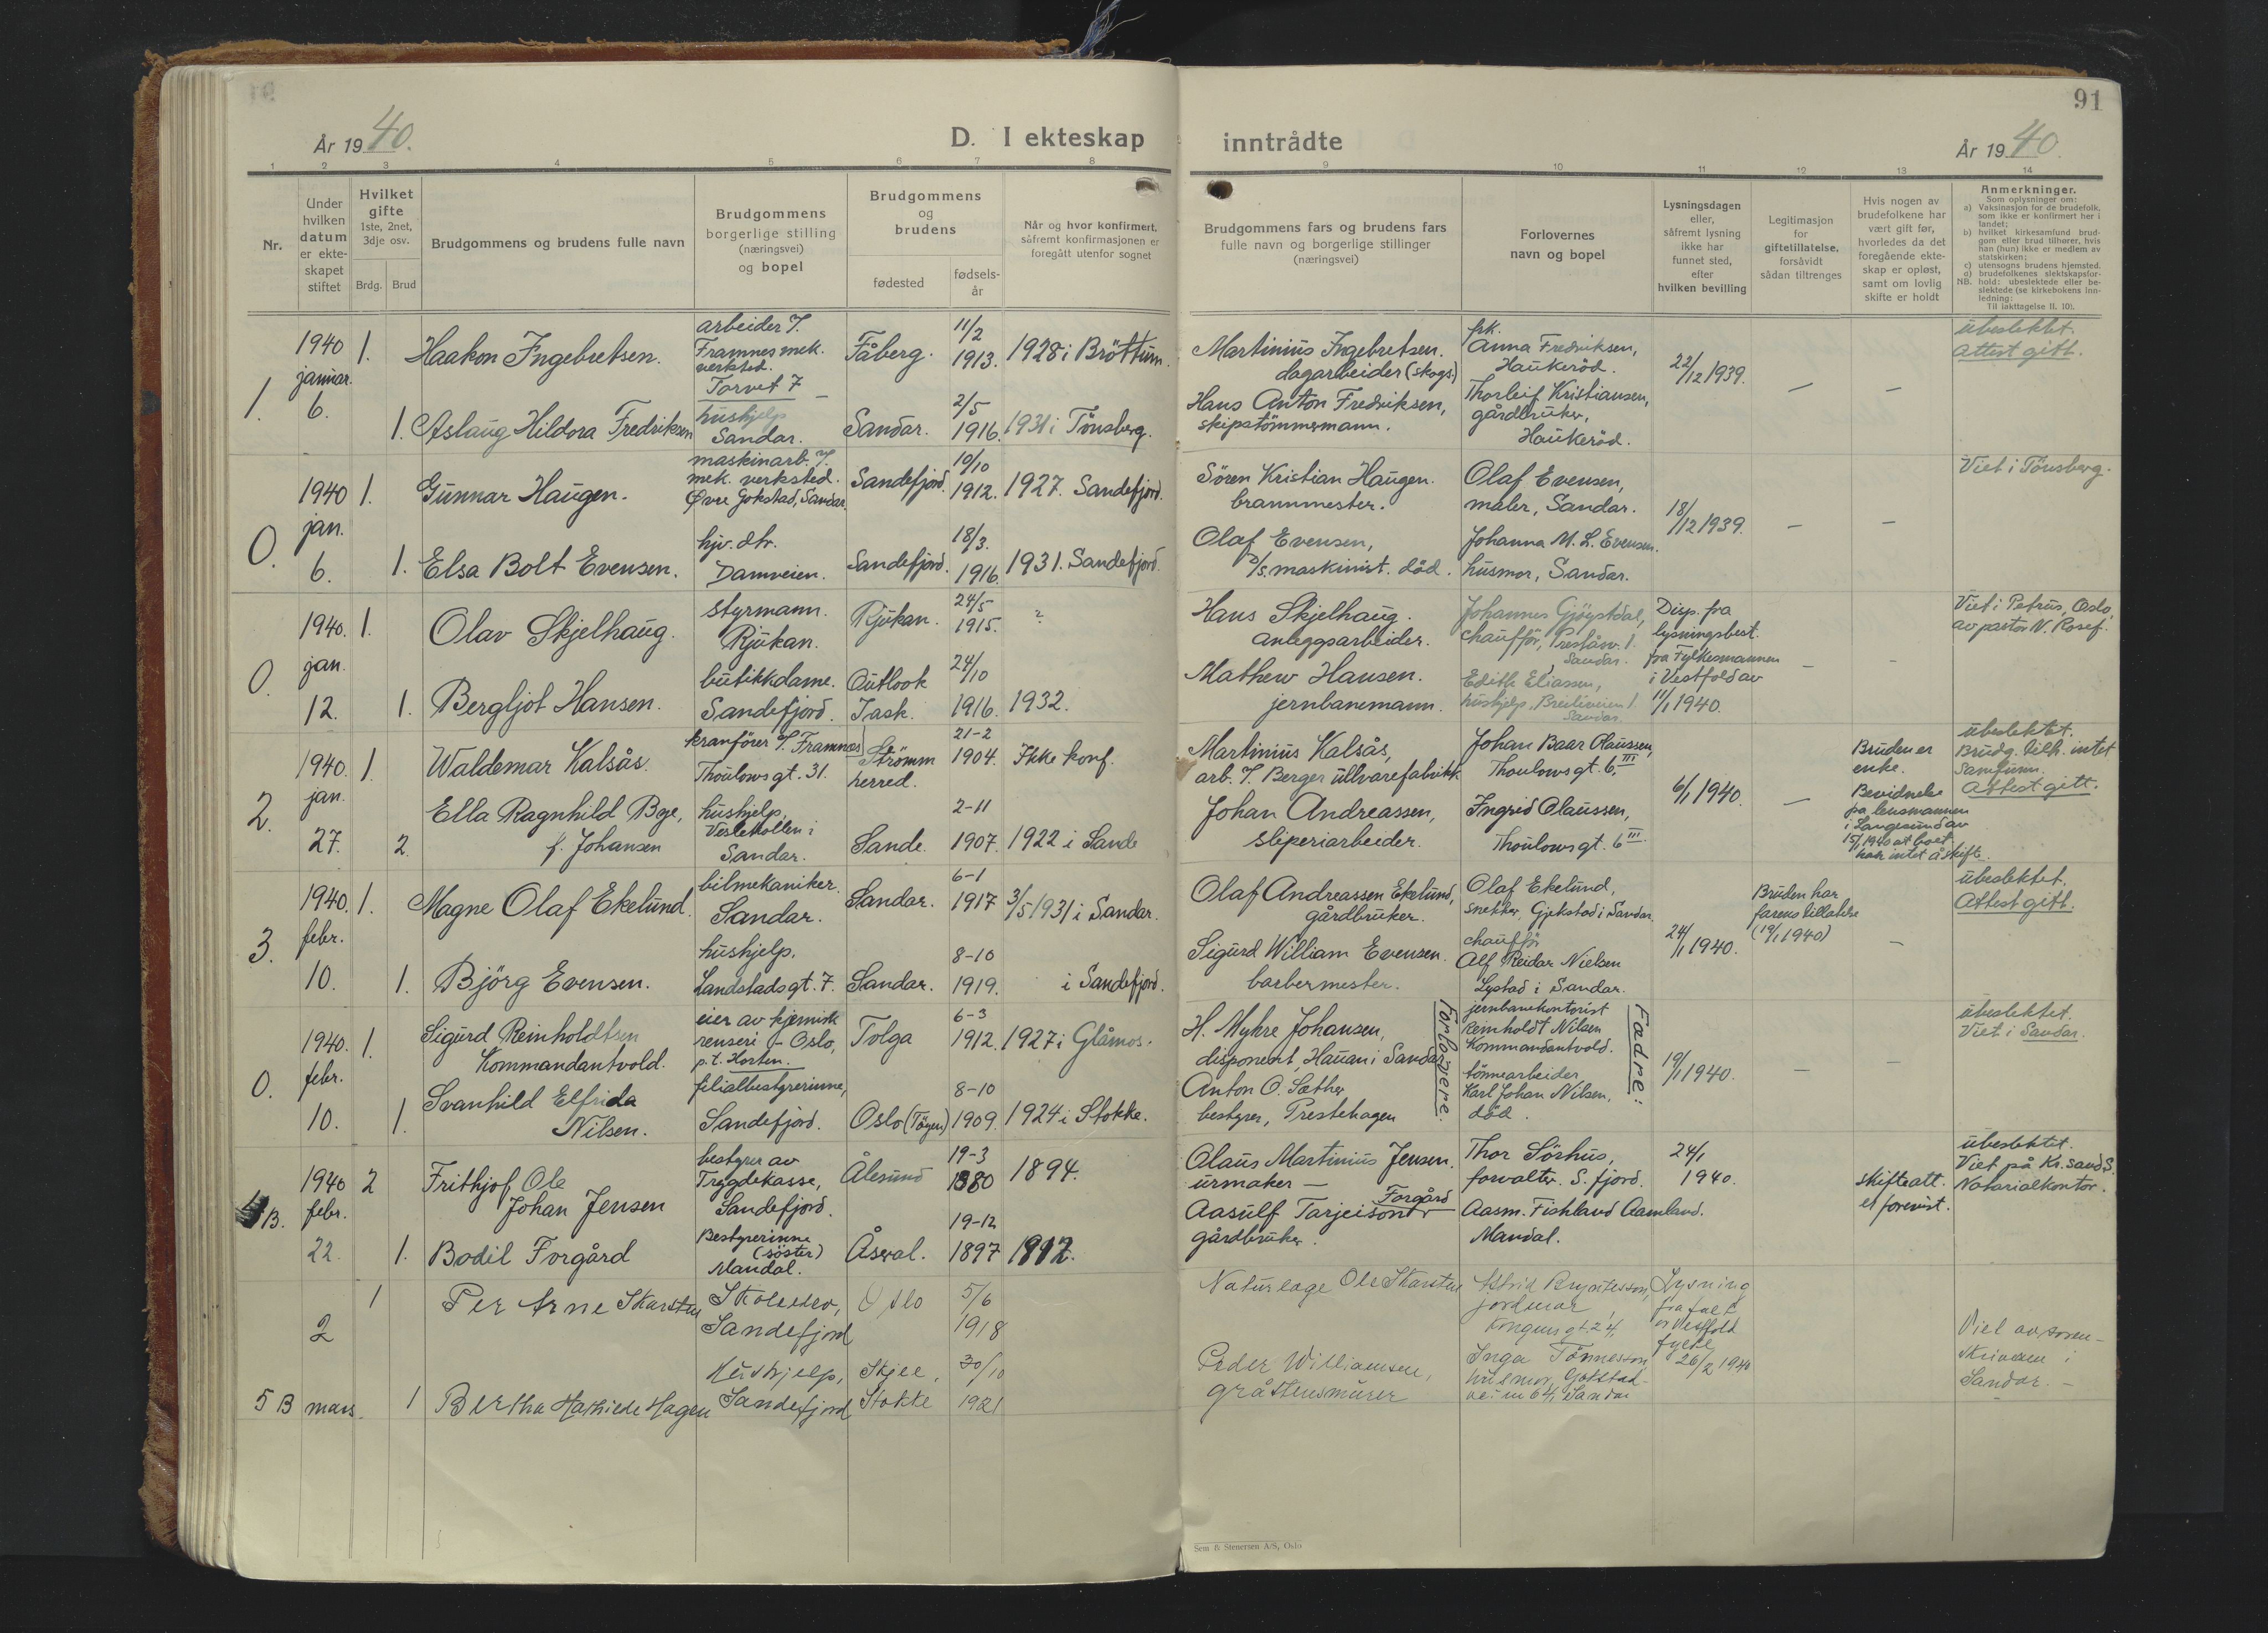 91
År 1940.
D. I ekteskap inntrådte
År 1940.
1 2 3 4 5 6 7 8 9 10 11 12 13 14
Nr.
Under
hvilken
datum
er ekte-
skapet
stiftet
Hvilket
gifte
1ste, 2net,
3dje osv.
Brdg. Brud
Brudgommens og brudens fulle navn
Brudgommens
borgerlige stilling
(næringsvei)
og bopel
Brudgommens
og
brudens
fødested
fødsels-
år
Når og hvor konfirmert,
såfremt konfirmasjonen er
foregått utenfor sognet
Brudgommens fars og brudens fars
fulle navn og borgerlige stillinger
(næringsvei)
Forlovernes
navn og bopel
Lysningsdagen
eller,
såfremt lysning
ikke har
funnet sted,
efter
hvilken bevilling
Legitimasjon
for
giftetillatelse,
forsåvidt
sådan tiltrenges
Hvis nogen av
brudefolkene har
vært gift før,
hvorledes da det
foregående ekte-
skap er opløst,
samt om lovlig
skifte er holdt
Anmerkninger.
Som oplysninger om:
a) Vaksinasjon for de brudefolk,
som ikke er konfirmert her i
landet;
b) hvilket kirkesamfund brud-
gom eller brud tilhører, hvis
han (hun) ikke er medlem av
statskirken;
c) utensogns brudens hjemsted.
d) brudefolkenes slektskapsfor-
NB. hold: ubeslektede eller be-
slektede (se kirkebokens inn-
ledning:
Til iakttagelse II. 10).
1.
1940
januar.
6.
1.
Haakon Ingebretsen.
arbeider v/
Framnes mek.
verksted.
Torvet 7
Fåberg.
11/2
1913.
1928 i Bröttum.
Martinius Ingebretsen.
dagarbeider (skogs.)
frk.
Anna Fredriksen,
Haukeröd.
22/12 1939.
–
–
ubeslektet.
Attest gitt.
1.
Aslaug Hildora Fredriksen
hushjelp
Sandar.
Sandar.
2/5
1916.
1931 i Tönsberg.
Hans Anton Fredriksen,
skipstömmermann.
Thorleif Kristiansen,
gårdbruker,
Haukeröd.
0.
1940
jan.
6.
1.
Gunnar Haugen.
maskinarb. v/
mek. verksted.
Øvre Gokstad, Sandar.
Sandefjord.
10/10
1912.
1927. Sandefjord.
Sören Kristian Haugen.
brannmester.
Olaf Evensen,
maler, Sandar.
18/12 1939.
–
–
Viet i Tönsberg.
1.
Elsa Bolt Evensen.
hjv. dtr.
Damveien.
Sandefjord.
18/3.
1916.
1931. Sandefjord.
Olaf Evensen,
D/S maskinist. död.
Johanna M. L. Evensen.
husmor, Sandar.
0.
1940.
jan.
12.
1.
Olav Skjelhaug.
styrmann.
Rjukan.
Rjukan.
24/5
1915.
?
Hans Skjelhaug.
anleggsarbeider.
Johannes Gjöystdal,
chaufför, Preståsv. 1.
Sandar.
Disp. fra
lysningsbest.
fra Fylkesmannen
i Vestfold av
11/1 1940.
–
–
Viet i Petrus, Oslo,
av pastor N. Rosef.
1.
Bergljot Hansen.
butikkdame.
Sandefjord.
Outlook
Sask.
24/10
1916.
1932.
Mathew Hansen.
jernbanemann.
Edith Eliassen,
hushjelp, Breiliveien 1.
Sandar.
2.
1940.
jan.
27.
1.
Waldemar Kalsås.
kranförer v/ Framnes
Thoulows gt. 31.
Strömm
herred.
21-2
1904.
Ikke konf.
Martinius Kalsås,
arb. v/ Berger ullvarefabrikk
Johan Baar Olaussen,
Thoulows gt. 6. III
6/1 1940.
–
Bruden er
enke.
Bevidnelse
fra lensmannen
i Langesund av
15/1 1940 at boet
har intet å skifte.
ubeslektet.
Brudg. tilh. intet
samfunn.
Attest gitt.
2.
Ella Ragnhild Bge,
f. Johansen
hushjelp,
Veslekollen i
Sandar.
Sande.
2-11
1907.
1922 i Sande
Johan Andreassen,
sliperiarbeider.
Ingrid Olaussen,
Thoulows gt. 6 III
3.
1940.
febr.
10.
1.
Magne Olaf Ekelund.
bilmekaniker.
Sandar.
Sandar.
6-1
1917
3/5 1931 i Sandar.
Olaf Andreassen Ekelund,
gårdbruker.
Olaf Ekelund,
snekker, Gjekstad i Sandar.
24/1 1940.
Bruden har
farens tillatelse
(19/1 1940)
–
ubeslektet.
Attest gitt.
1.
Björg Evensen.
hushjelp.
Landstads gt. 7.
Sandar.
8-10
1919.
i Sandefjord.
Sigurd William Evensen.
barbermester.
chaufför
Alf Reidar Nielsen
Lystad i Sandar.
0.
1940.
febr.
10.
1.
Sigurd Reinholdtsen
Kommandantvold.
eier av kjemisk
renseri – Oslo,
p.t. Horten.
Tolga
6-3
1912.
1927 i Glåmos.
H. Myhre Johansen,
disponent, Hauan i Sandar
Forlovere.
jernbanekontorist
Reinholdt Nilsen
Kommandantvold.
Fædre:
19/1 1940.
–
–
ubeslektet.
Viet i Sandar.
1.
Svanhild Elfrida
Nilsen.
filialbestyrerinne,
Sandefjord.
Oslo (Töyen)
8-10
1909.
1924 i Stokke.
Anton O. Sæther
bestyrer, Prestehagen
tönnearbeider
Karl Johan Nilsen,
död.
4 B.
1940
febr.
22.
2
Frithjof Ole
Johan Jensen
bestyrer av
Trygdekasse,
Sandefjord.
Ålesund
19-3
1880
1894.
Olaus Martinius Jensen.
urmaker –
Thor Sörhus,
forvalter. S. fjord.
24/1
1940.
skifteatt.
er forevist.
ubeslektet.
Viet på Kr.sand S.
Notarialkontor.
1.
Bodil Forgård
Bestyrerinne
(söster)
Mandal.
Åseral.
19-12
1897
1912.
Aasulf Tarjeison Forgård
gårdbruker.
Aasm. Fishland Aamland.
Mandal.
5 B
2
mars.
1
Per Arne Skarstu
Skoleelev,
Sandefjord
Oslo
5/6
1918
Naturlege Ole Skarstu
Astrid Bryntesson,
jordmor,
Kongens gt. 24.
Lysning
frafalt
av Vestfold
fylke
26/2 1940
Viet av soren-
skriveren i
Sandar. –
1
Bertha Mathilde Hagen
Hushjelp,
Sandefjord
Skjee,
Stokke
30/10
1921
Peder Williamsen,
gråstensmurer
Inga Tönnesson,
husmor, Gokstad-
veien 64, Sandar
Sem & Stenersen A/S, Oslo